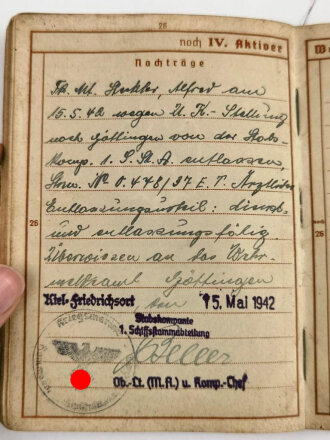 26
noch IV. Aktiver
Nachträge
Alfred am
15.5.42 wegen U.K.-Stellung
nach Göttingen von der Stabs-
komp. 1. S. St. A. entlassen,
Strw. No 0.448/37 E. T. Ärztliches
Entlassungsurteil: dienst-
26
und entlassungsfähig.
Überwiesen an das Wehr-
meldeamt Göttingen
Kiel-Friedrichsort den 15. Mai 1942
Stabskompanie
1. Schiffsstammabteilung
Ob.-Lt. (M.A.) u. Komp.-Chef